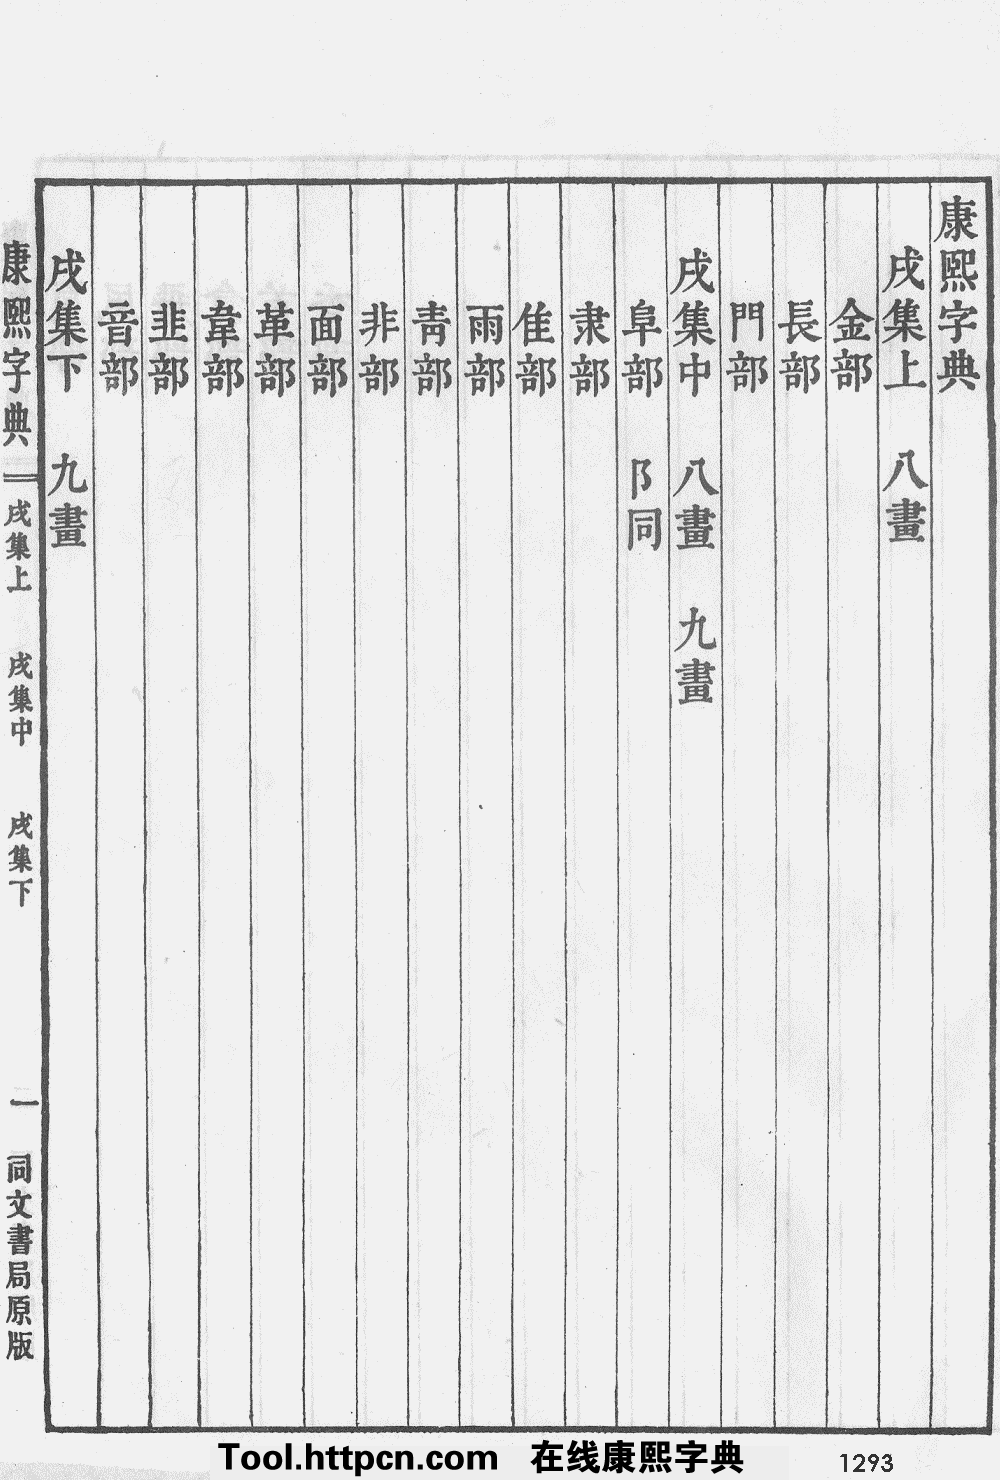 康熙字典
戌集上 八畫
金部
長部
門部
戌集中 八畫 九畫
阜部 阝同
隶部
隹部
雨部
靑部
非部
面部
革部
韋部
韭部
音部
戌集下 九畫
康熙字典 戌集上 戌集中 戌集下 一 同文書局原版
Tool.httpcn.com 在线康熙字典 1293